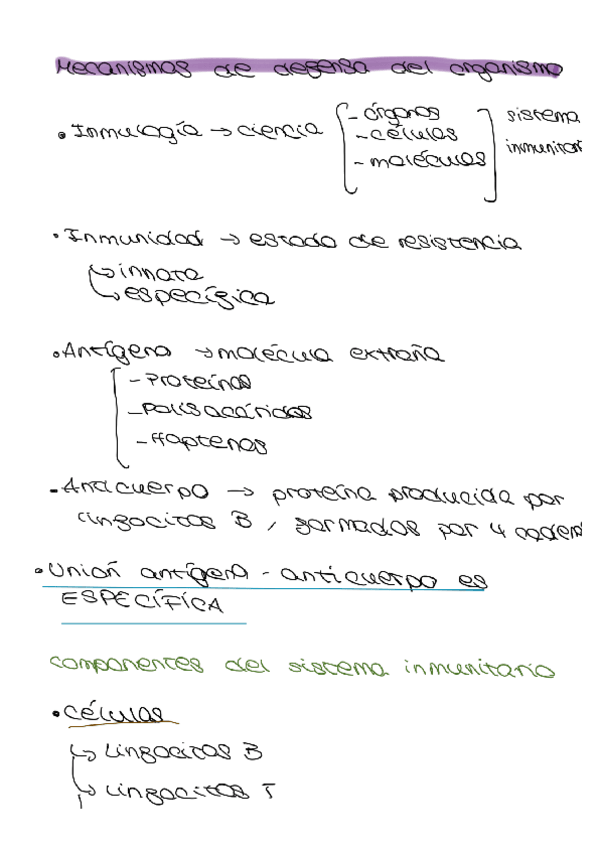 Mecanismos de defensa del organismo
• Inmulogía → ciencia - órganos sistema
- células
- moléculas inmunitari
• Inmunidad → estado de resistencia
↳ innata
↳ específica
• Antígeno → molécula extraña
- Proteínas
- Polisacáridos
- Haptenos
- Anticuerpo → proteína producida por
linfocitos B, formados por 4 caden
• Unión antígeno - anticuerpo es
ESPECÍFICA
componentes del sistema inmunitario
• células
↳ Linfocitos B
↳ Linfocitos T